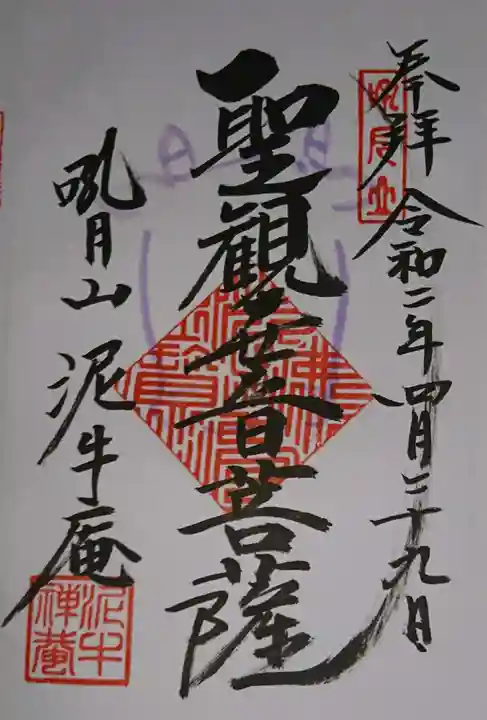 奉拝 令和二年四月二十九日
聖観世音菩薩
吼月山 泥牛庵
泥牛禅菴